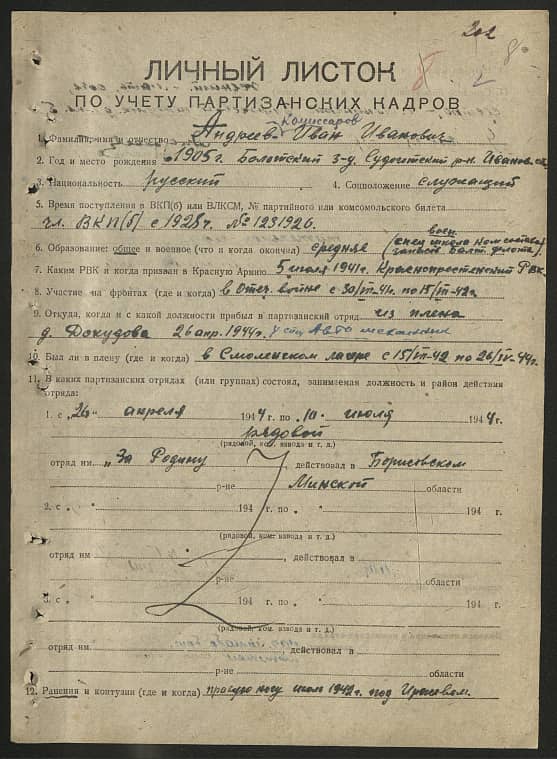 202
8
2
8
ЛИЧНЫЙ ЛИСТОК
ПО УЧЕТУ ПАРТИЗАНСКИХ КАДРОВ
Комиссаров
1. Фамилия, имя и отчество Андреев Иван Иванович
2. Год и место рождения 1905 г. Судоготский р-н Иванов.
3. Национальность русский 4. Соцположение служащий
5. Время поступления в ВКП(б) или ВЛКСМ, № партийного или комсомольского билета
чл. ВКП(б) с 1928 г. №1231926.
воен
6. Образование: общее и военное (что и когда окончил) среднее (спец школа комсостава
запаса Балт. флота)
7. Каким РВК и когда призван в Красную Армию 5 июля 1941 г. Краснопресненский РВК
8. Участие на фронтах (где и когда) в Отеч. войне с 30/VII-41г. по 15/III-42г
9. Откуда, когда и с какой должности прибыл в партизанский отряд из плена
д. Докудова 26 апр. 1944 г. Автомеханик
10. Был ли в плену (где и когда) в Смоленском лагере с 15/III-42 по 26/IV-44г.
11. В каких партизанских отрядах (или группах) состоял, занимаемая должность и район действия
отряда:
1. с „26“ апреля 1944 г. по „10“ июля 1944 г.
рядовой
(рядовой, ком. взвода и т. д.)
отряд им. „За Родину“, действовал в Борисовском
р-не Минской области
2. с „ 194 г. по „ 194 г.
(рядовой, ком. взвода и т. д.)
отряд им , действовал в
р-не области
3. с „ 194 г. по „ 194 г.
(рядовой, ком. взвода и т. д.)
отряд им. , действовал в
р-не области
12. Ранения и контузии (где и когда) правую ногу 1942 г. под